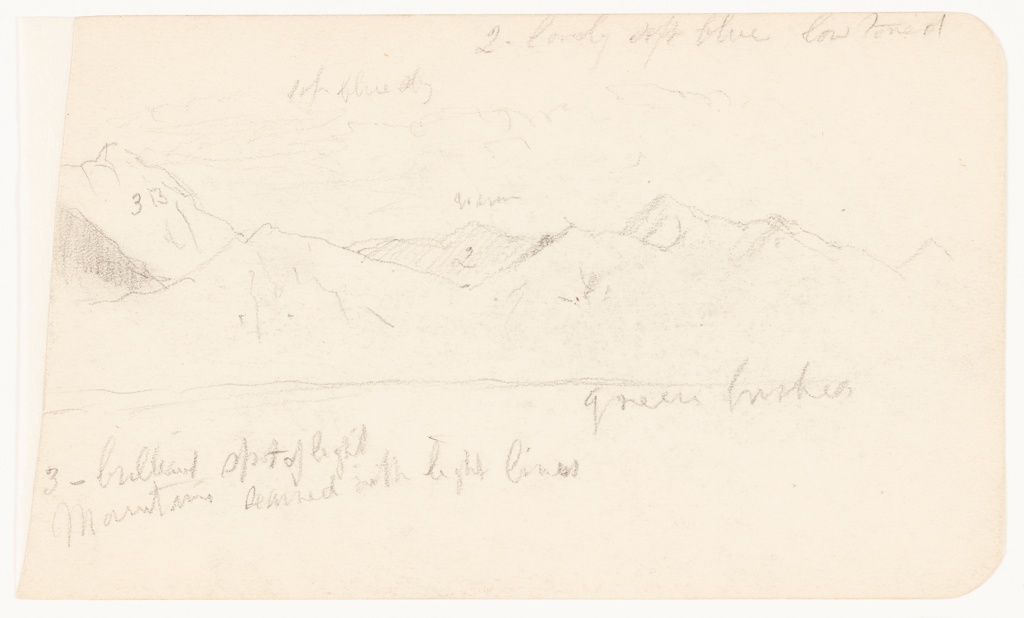 2 - lovely soft blue low toned
soft blue sky
3 B
warm
2
green bushes
3 - brilliant spot of light
Mountains seamed with light lines